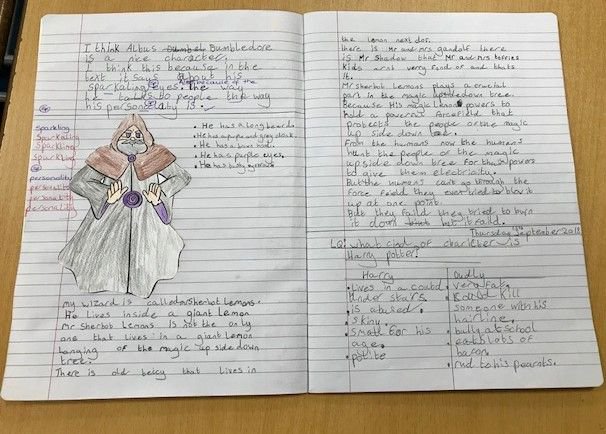 I think Albus Dumbledore
is a nice character.
I think this because in the
text it says about his
sparkaling eyes. The way
also because of the
he talks to people the way
his personality is.
sparkling
sparkaling
sparkling
sparkling
personality
personality
personality
personality
• He has a long beard.
• He has a purple and grey cloak.
• He has a
• He has purple eyes.
• He has
my wizard is called mr sherbot Lemons.
He lives inside a giant Lemon
Mr sherbob Lemons Is not the only
one that lives in a giant Lemon
hanging of the magic up side down
tree.
There is old betcy that lives in
the lemon next dor.
there is Mr and mrs gandolf there
is Mr Shadow that Mr and Mrs terries
kids arnt verry fond of and thats
it.
Mr sherbob Lemons plays a crucial
part in the magic upside down tree.
Because His magic Lemon powers to
hold a powerul forcefield that
protects the people of the magic
up side down tree.
From the humans now the humans
hunt the people of the magic
upside down tree for their powers
to give them electricity.
But the humans cant go through the
force field they even tried to blow it
up at one point.
But they faild they tried to burn
it down but it faild.
Thursday September
LQ: what cind of charicter is
Harry potter?
Harry
• Lives in a coubd
under stars.
• is abused.
• skiny.
• small for his
age.
• polite
Dudly
• very Fat.
• Kould Kill
someone with his
hairline.
• bully at school
• eats lots of
bacon.
• rud to his pearnts.